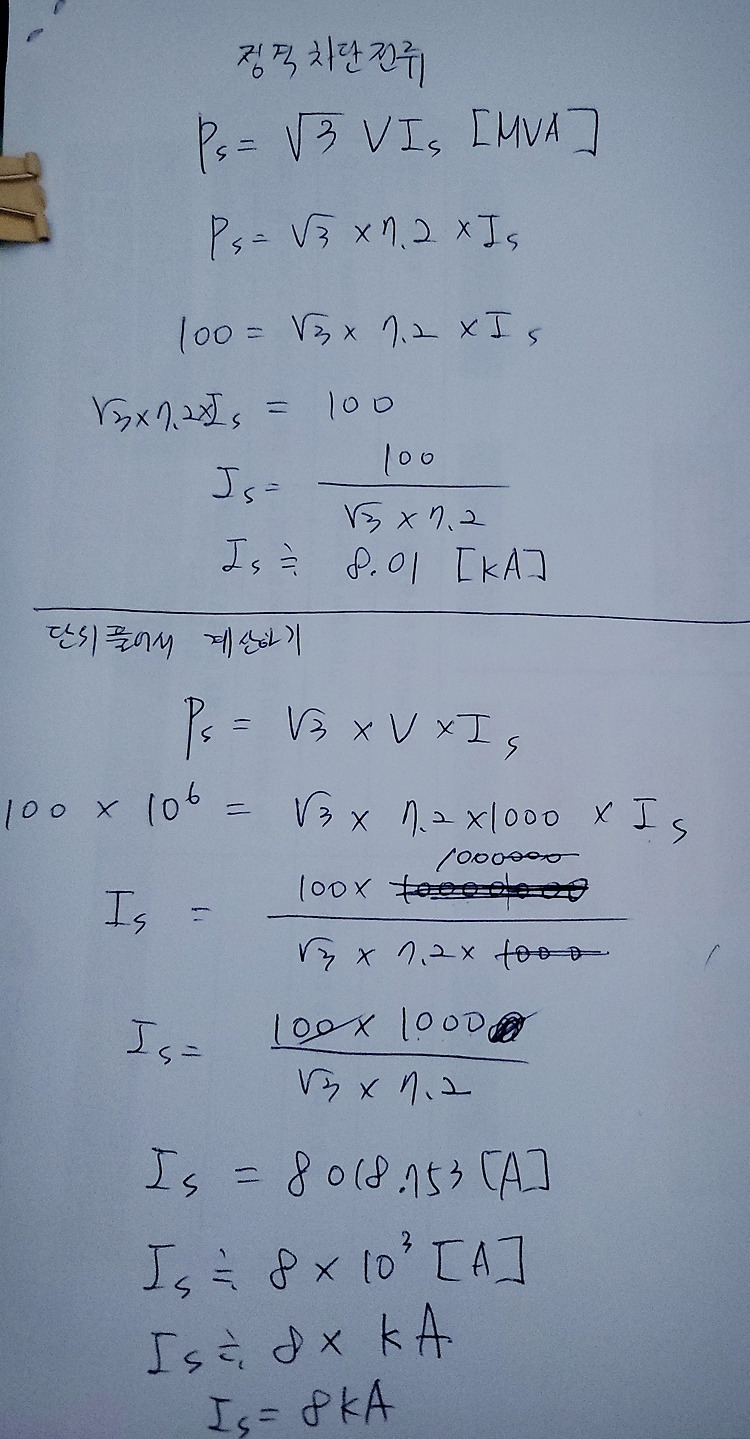 정격차단전류
Ps = √3 VIs [MVA]
Ps = √3 × 7.2 × Is
100 = √3 × 7.2 × Is
√3×7.2×Is = 100
Is = 100 / √3 × 7.2
Is ≒ 8.01 [kA]
단위 풀어서 계산하기
Ps = √3 × V × Is
100 × 10⁶ = √3 × 7.2 ×1000 × Is
1000000
Is = 100× / √3 × 7.2× 1000
Is = 100× 1000 / √3 × 7.2
Is = 8018.753 [A]
Is ≒ 8 × 10³ [A]
Is ≒ 8 × kA
Is = 8kA